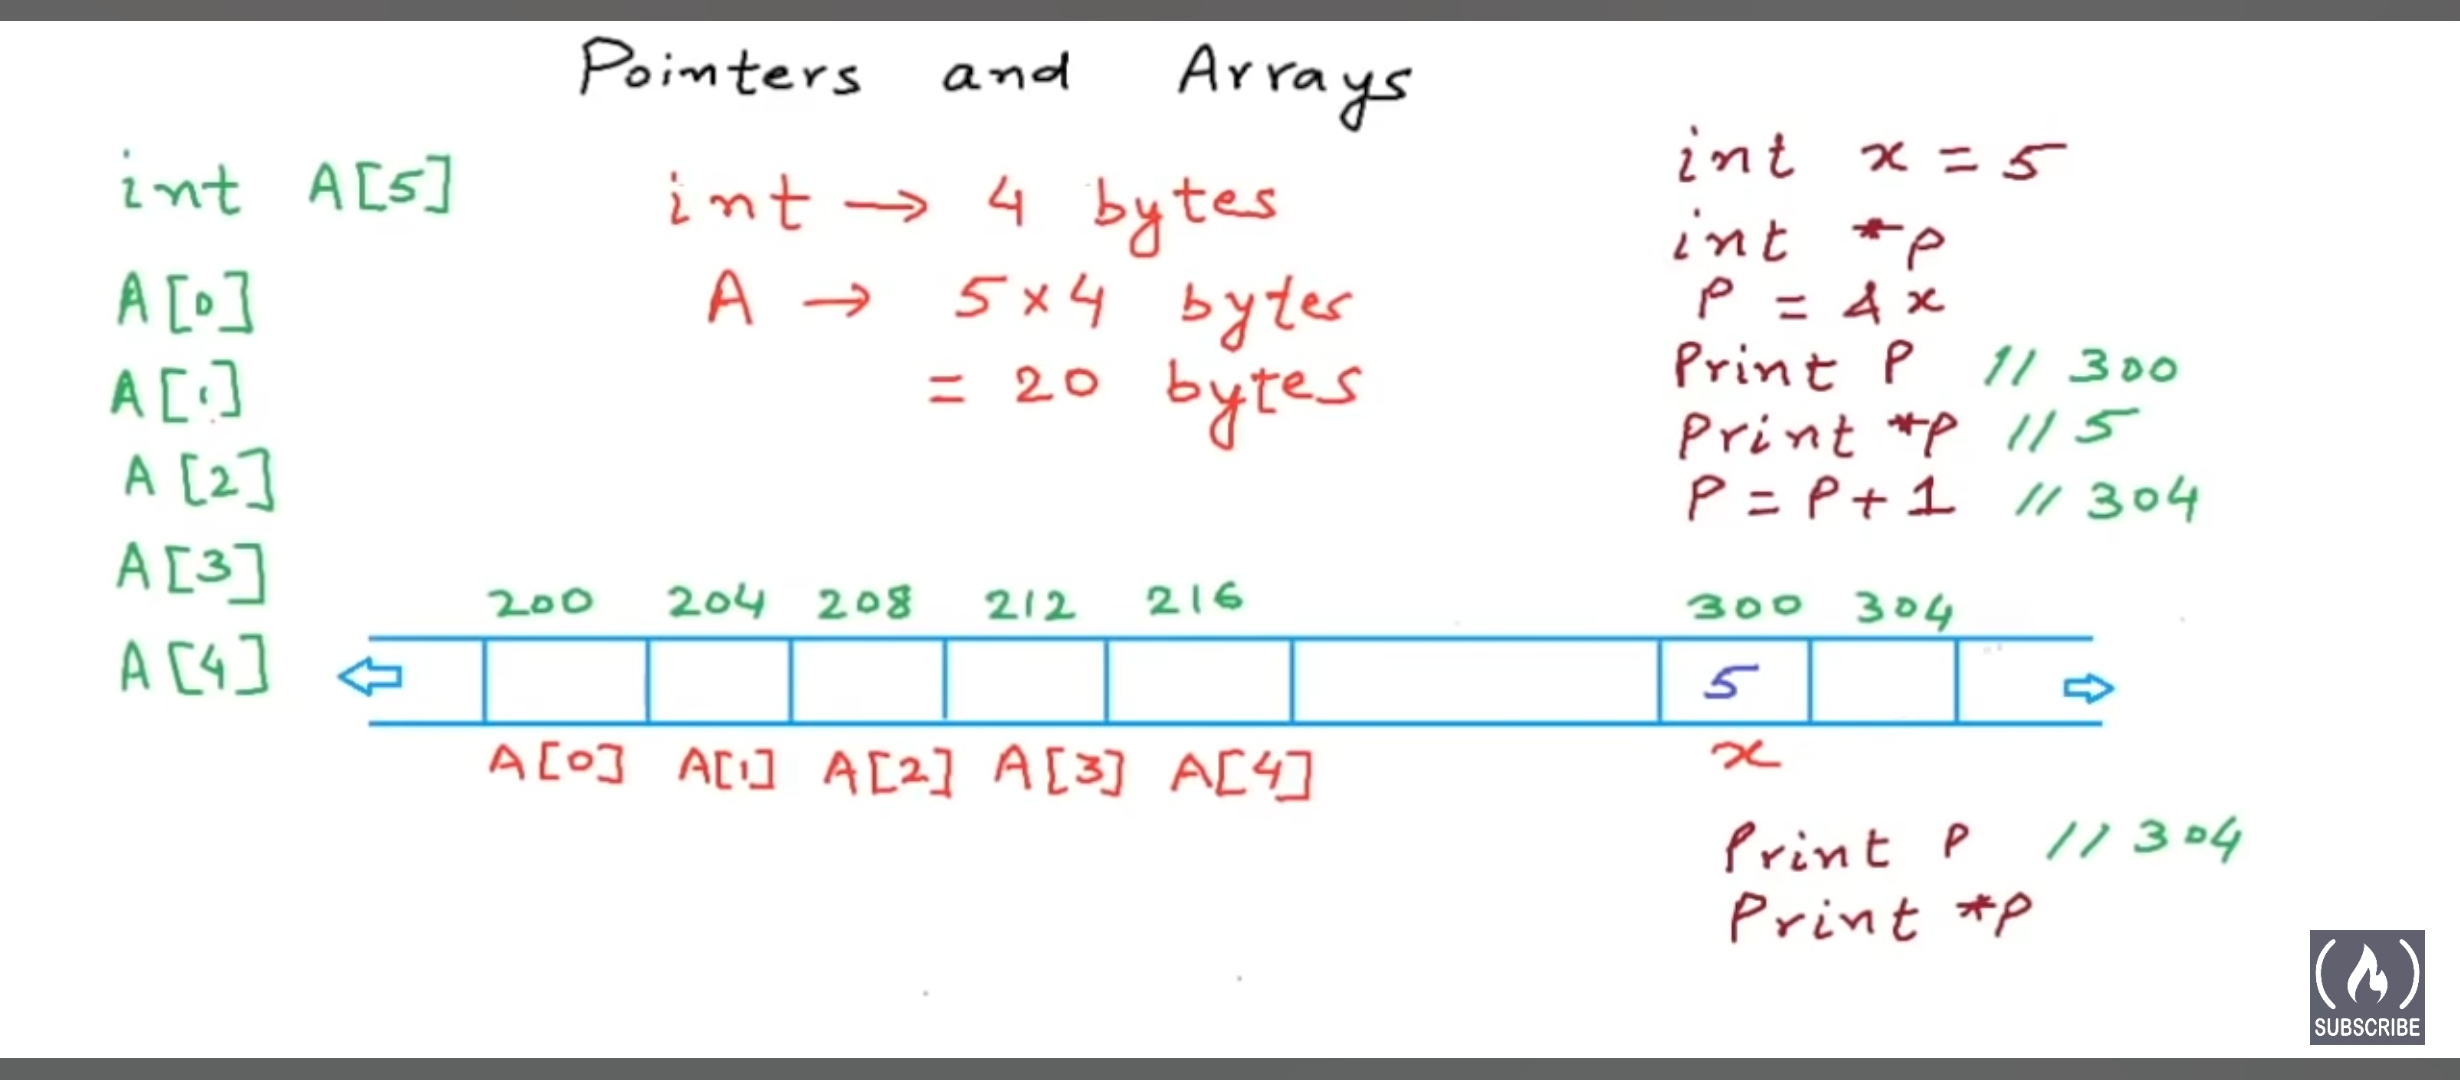 Pointers and Arrays
int A[5]
A[0]
A[1]
A[2]
A[3]
A[4]
int → 4 bytes
A → 5×4 bytes
= 20 bytes
int x = 5
int *p
P = &x
Print P // 300
Print *p // 5
P = P+1 // 304
200 204 208 212 216 300 304
5
A[0] A[1] A[2] A[3] A[4] x
Print P // 304
Print *p
SUBSCRIBE